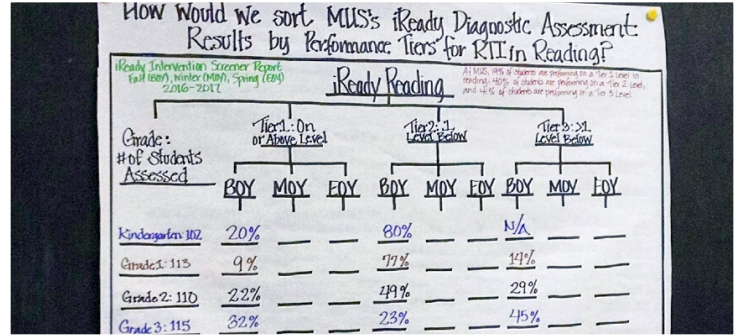 How Would We sort MUS's iReady Diagnostic Assessment
Results by Performance Tiers for RTI in Reading?
iReady Intervention Screener Report
Fall (BOY), Winter (MOY), Spring (EOY)
2016-2017
iReady Reading
At MUS, 19% of students are performing on a Tier 1 Level in
reading; 40% of students are performing on a Tier 2 Level,
and 41% of students are performing on a Tier 3 Level
Grade:
# of Students
Assessed
Tier 1: On
or Above Level
Tier 2: 1
Level Below
Tier 3: >1
Level Below
BOY MOY EOY BOY MOY EOY BOY MOY EOY
Kindergarten: 102 20% 80% N/A
Grade 1: 113 9% 77% 14%
Grade 2: 110 22% 49% 29%
Grade 3: 115 32% 23% 45%